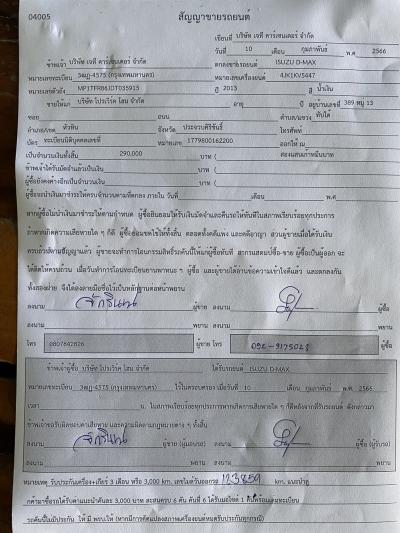 04005
สัญญาขายรถยนต์
เขียนที่ บริษัท เจที คาร์เซนเตอร์ จำกัด
วันที่ 10 เดือน กุมภาพันธ์ พ.ศ 2566
ข้าพเจ้า บริษัท เจที คาร์เซนเตอร์ จำกัด ตกลงขายรถยนต์ ISUZU D-MAX
หมายเลขทะเบียน 3ฒฎ-4575 (กรุงเทพมหานคร) หมายเลขเครื่องยนต์ 4JK1KV5447
หมายเลขตัวถัง MP1TFR86JDT035915 ปี 2013 สี น้ำเงิน
ขายให้แก่ บริษัท โปรเวิร์ค โฮม จำกัด อายุ ปี อยู่บ้านเลขที่ 389 หมู่ 13
ซอย ถนน ตำบล/แขวง ทับใต้
อำเภอ/เขต หัวหิน จังหวัด ประจวบคีรีขันธ์ โทรศัพท์
บัตร ทะเบียนนิติบุคคลเลขที่ หมายเลข 1779800162200 ออกให้ ณ
เป็นจำนวนเงินทั้งสิ้น 290,000 บาท ( สองแสนเก้าหมื่นบาท
ข้าพเจ้าได้รับมัดจำแล้วเป็นเงิน บาท (
ผู้ซื้อยังคงค้างอีกเป็นจำนวนเงิน บาท (
ผู้ซื้อจะนำเงินมาชำระให้ครบจำนวนตามที่ตกลง ภายใน วันที่ เดือน พ.ศ.
หากผู้ซื้อไม่นำเงินมาชำระให้ตามกำหนด ผู้ซื้อยินยอมให้ริบเงินมัดจำและคืนรถให้ทันทีในสภาพเรียบร้อยทุกประการ
ถ้าหากเกิดความเสียหายใด ๆ ก็ดี ผู้ซื้อยอมชดใช้ให้ทั้งสิ้น ตลอดทั้งคดีแพ่ง และคดีอาญา ส่วนผู้ขายเมื่อได้รับเงิน
ครบถ้วนตามสัญญาแล้ว ผู้ขายจะทำการโอนกรรมสิทธิ์รถคันนี้ให้แก่ผู้ซื้อทันที ค่าอากรแสตมป์ซื้อ-ขาย ผู้ซื้อเป็นผู้ออก จะ
ทั้งสองฝ่าย จึงได้ลงลายมือชื่อไว้เป็นหลักฐานต่อหน้าพยาน
ลงนาม ผู้ขาย ลงนาม ผู้ซื้อ
ลงนาม พยาน ลงนาม พยาน
โทร 0807842826 ผู้ขาย โทร ผู้ซื้อ
ข้าพเจ้าผู้ซื้อ บริษัท โปรเวิร์ค โฮม จำกัด ได้รับรถยนต์ ISUZU D-MAX
หมายเลขทะเบียน 3ฒฎ-4575 (กรุงเทพมหานคร) ไว้ในครอบครอง เมื่อวันที่ 10 เดือน กุมภาพันธ์ พ.ศ. 2566
เวลา น. ในสภาพเรียบร้อยทุกประการหากเกิดการเสียหายใด ๆ ก็ดีหลังจากที่รับรถยนต์ ดังกล่าวมา
ข้าพเจ้าขอรับผิดชอบชดใช้ค่าเสียหาย และความผิดตามกฎหมายต่าง ๆ ทั้งสิ้น
ลงนาม ผู้ขาย (ผู้มอบรถ) ลงนาม ผู้ซื้อ (ผู้รับรถ)
ลงนาม พยาน ลงนาม พยาน
หมายเหตุ รับประกันเครื่อง+เกียร์ 3 เดือน หรือ 3,000 km. เลขไมล์วันออกรถ 123859 km. แนะนำลูก